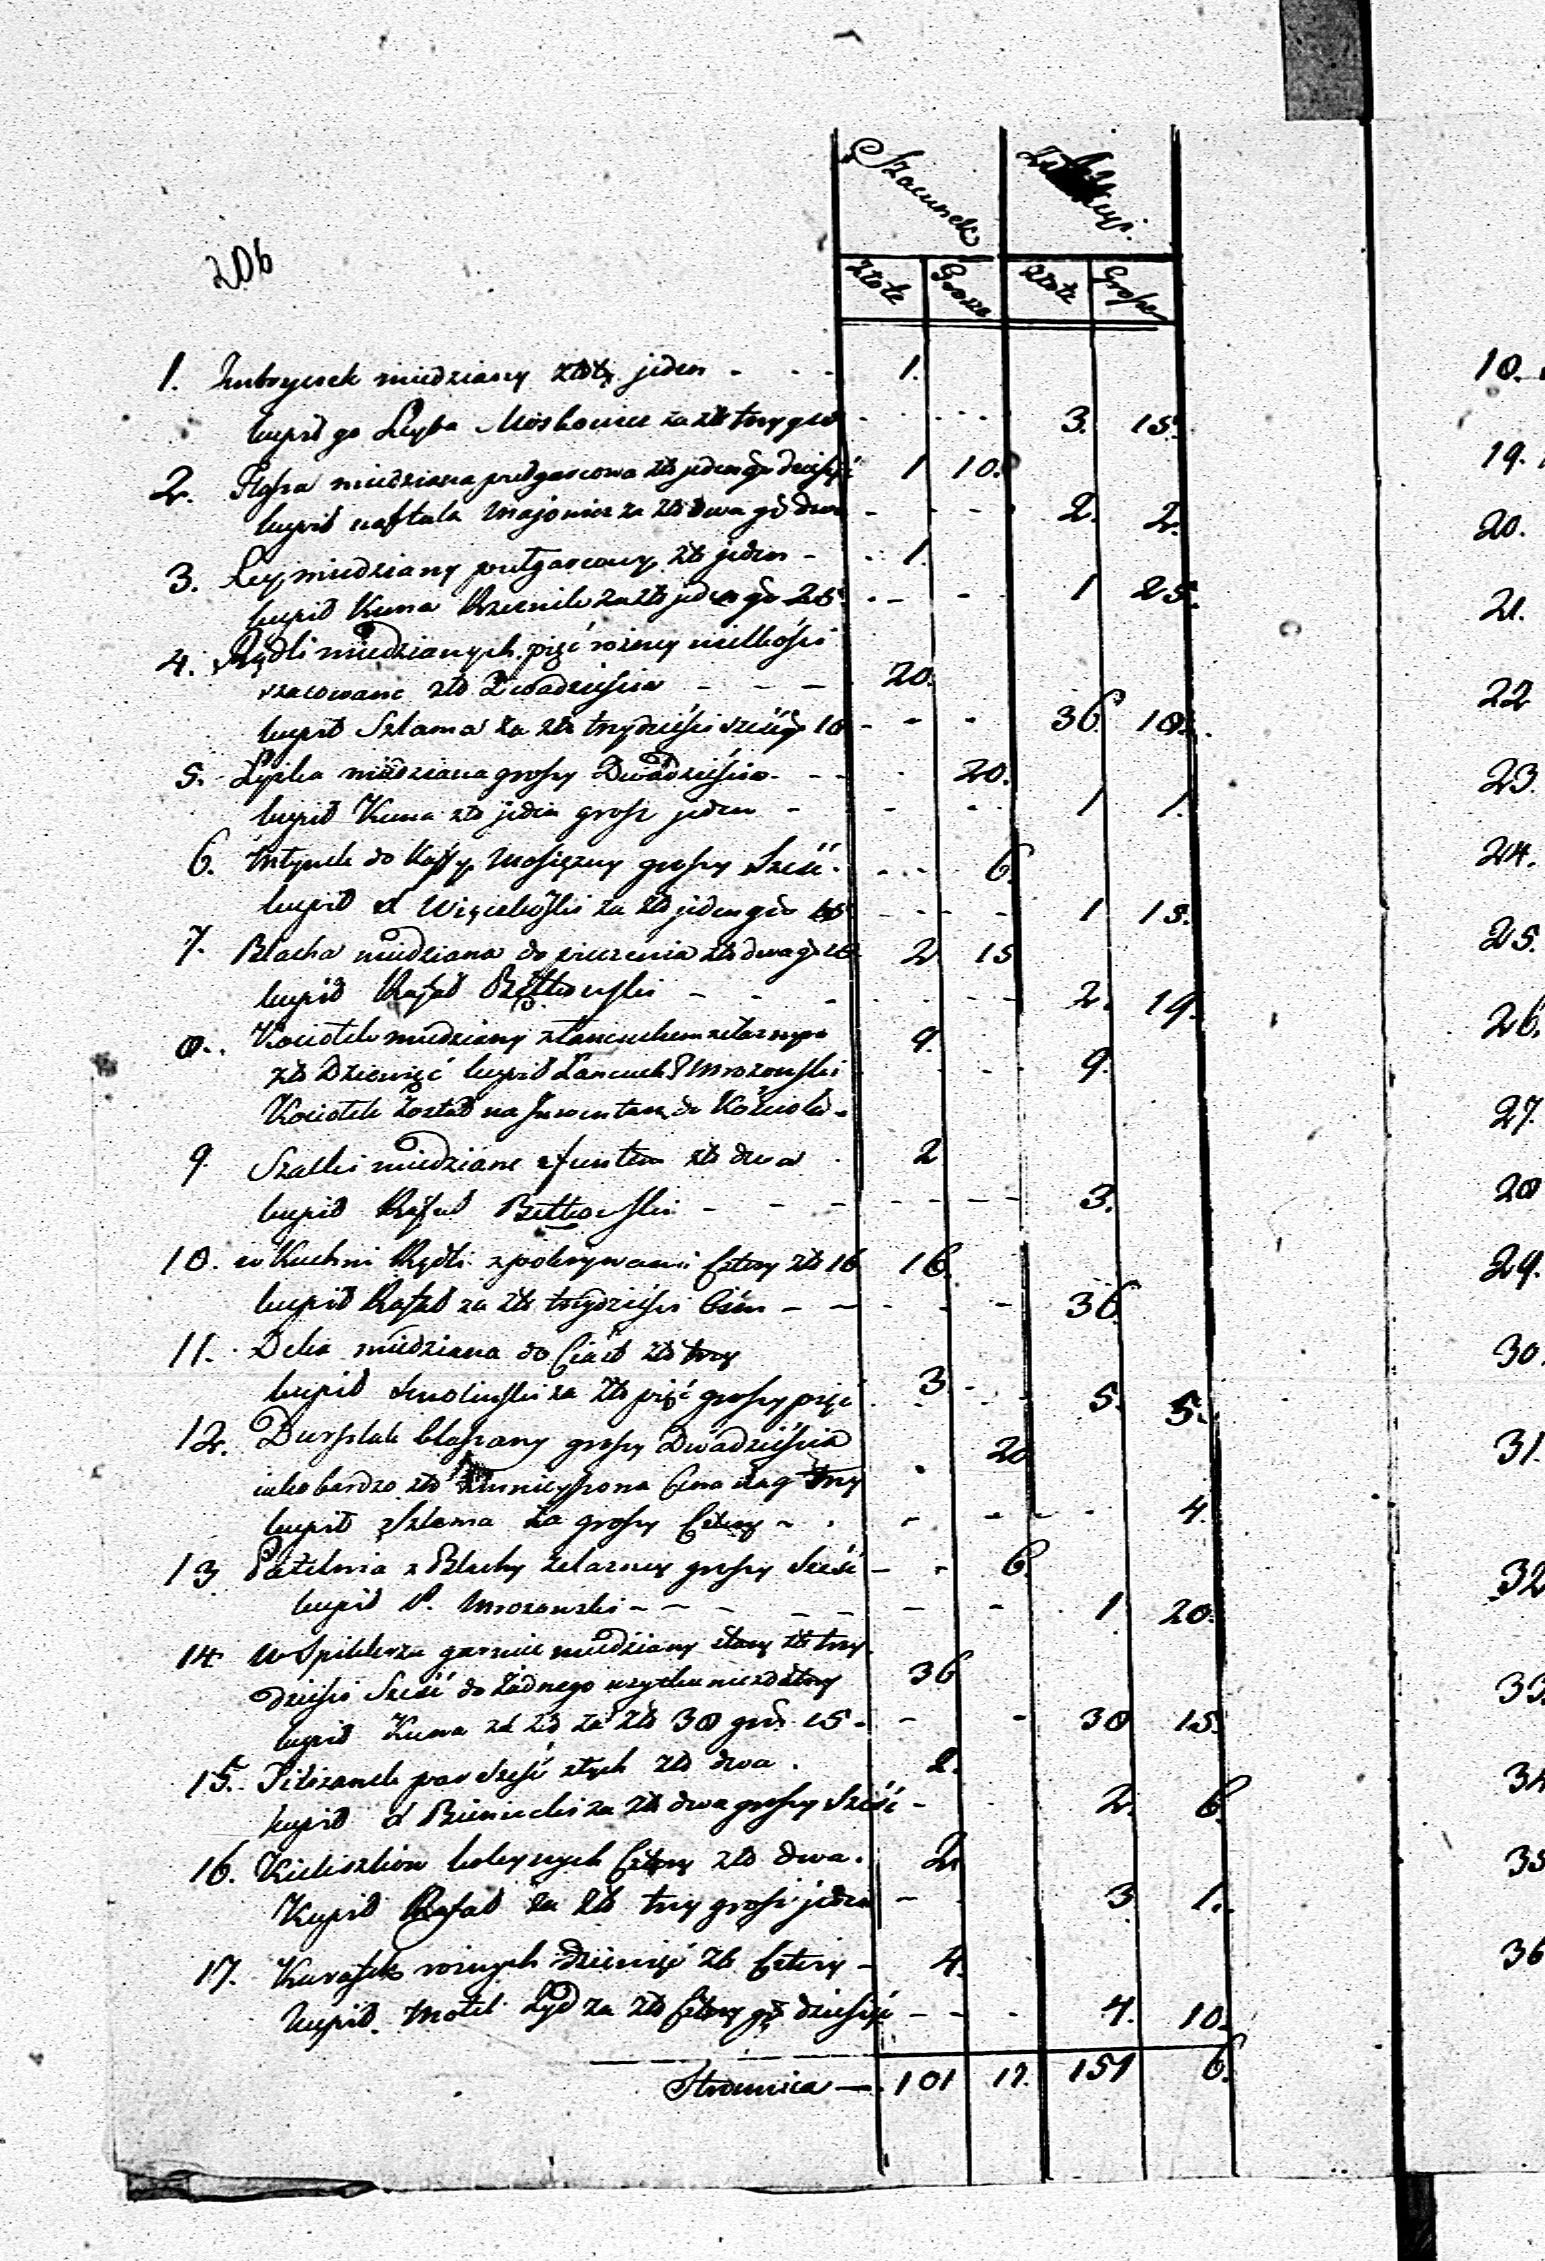 206
Szacunek
Złote Grosze Złote Grosze
1. Imbryczek miedziany złoty jeden - - - 1.
kupił go Leyba Moskowicz za złt trzy gr 15 - - - - 3. 15.
2. Flasza miedziana pułgarcowa złt jeden gr dziesięć 1 10.
kupił naftula Majorowicz za złt dwa gr dwa - - - - 2. 2.
3. Ley miedziany pułgarcowy złt jeden - - 1.
kupił Kuna za złt jeden gr 25. - - - 1 25.
4. Rądli miedzianych pięć rożney wielkości
szacowane złt Dwadzieścia - - - 20.
kupił Szlama za złt trzydzieści sześć gr 18 - - - 36 18.
5. Łyżka miedziana groszy Dwadzieścia - - - 20.
kupił Kuna złt jeden grosz jeden - - - 1 1.
6. do Kaffy Mosiężny groszy sześć - - - 6.
kupił za złt jeden gr 15 - - - - 1 15.
7. Blacha miedziana do pieczenia złt dwa gr 15 2 15
kupił Rafał Bętkowski - - - - - - 2. 19.
8. Kociołek miedziany z łancuchem żelaznym 9.
złt Dziewięć kupił Łancuch P Mrozowski - - - 9.
Kociołek został na Inwentarz do Kościoła -
9. Szalki miedziane z funtem złt dwa - 2
kupił Rafał Bętkowski - - - - - - 3.
10. w Kuchni Rądli z pokrywami cztery złt 16 16.
kupił Rafał za złt trzydzieści - - - - 38
11. Deka miedziana do Ciast złt trzy
kupił Smoliński za złt pięć groszy pięć 3. - - 5. 5.
12. Durszlak blaszany groszy Dwadzieścia 20
iako bardzo zły zmnieyszona Cena na g trzy
kupił Szlama za groszy Cztery - - - - - - 4.
13 Patelnia z Blachy żelazney groszy sześć - - 6.
kupił P. Mrozowski - - - - - - 1 20.
14 W Spiklerzu garniec miedziany stary złt trzy
dzieści sześć do żadnego użytku niezdatny 36
kupił Kuna za złt 38 gro 15 - - - 38 15.
15. Filiżanek par sześć złych złt dwa . 2.
kupił za złt dwa groszy sześć - - 2. 6.
16. Kieliszkow koleynych Cztery złt dwa. 2.
Kupił Rafał za złt trzy grosz jeden - - 3 1.
17. rożnych dziewięć zł Cztery - 4.
Kupił Motel Żyd za złt Cztery gr dziesięć - - - 4. 10.
Stronnica - 101 17. 157 6.
18.
19.
20.
21.
22
23.
24.
25.
26.
27.
28
29.
30.
31.
32
33.
34
35
36